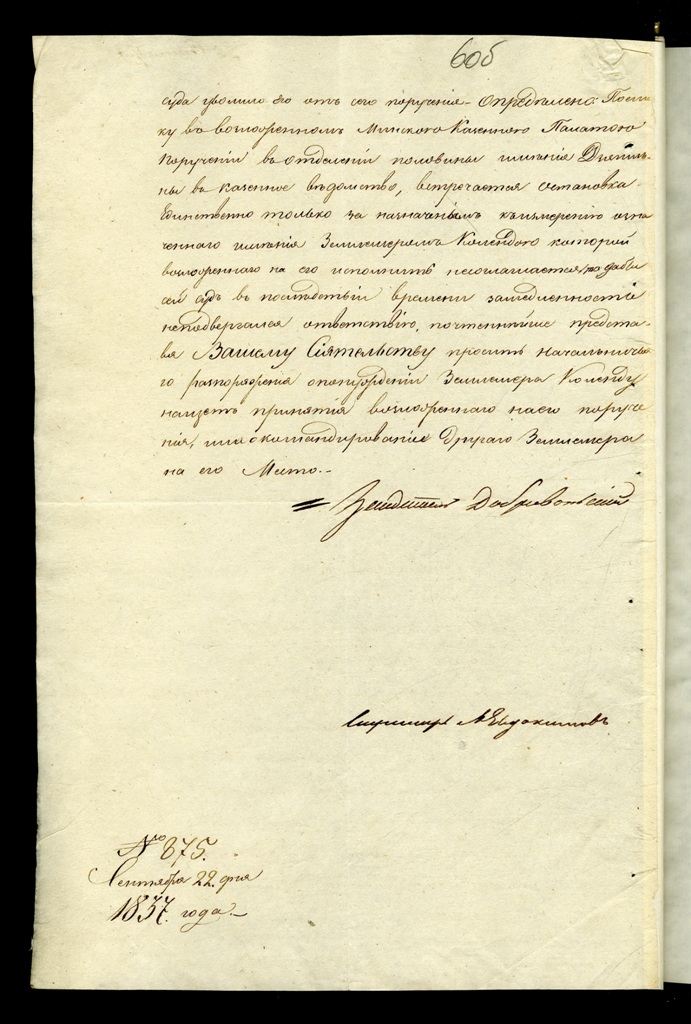 605
суда уволило его отъ сего порученія – Опредѣлено: Поели-
ку въ возложенномъ Минскою Казенною Палатою
порученіи въ отдѣленіи половины имѣнія
ны въ казенное вѣдомство, встрѣчается остановка
единственно только за назначенымъ къ измѣренію озна-
ченнаго имѣнія Землемѣромъ Колендою который
возложеннаго на его исполнить несоглашается, то дабы
сей судъ въ послѣдствіи времени за медленность
неподвергался отвѣтствію, почтеннѣйше предста-
вя Вашему Сіятельству просить начальническа-
го разпоряженія о понужденіи Землемѣра Коленду
насчетъ принятія возложеннаго на его поруче-
нія, или окомандированіе Другаго Землемѣра
на его Место.–
Засѣдатель Добровольскій
Секретарь А Евдокимовъ
№ 875.
Сентября 22. дня
1837. года.–